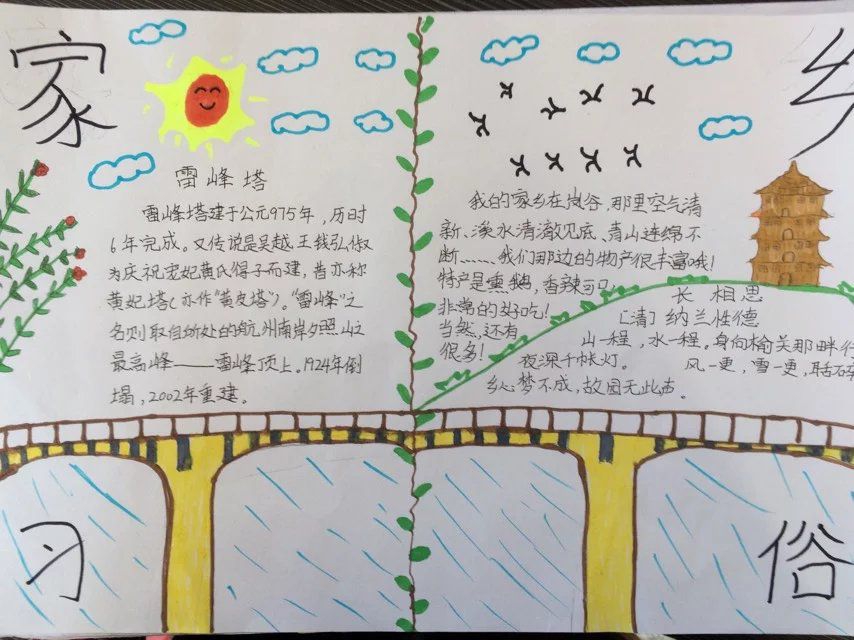 家乡
雷峰塔
雷峰塔建于公元975年，历时
6年完成。又传说是吴越王钱弘俶
为庆祝宠妃黄氏得子而建，昔亦称
黄妃塔(亦作"黄皮塔")。"雷峰"之
名则取自所处的杭州南岸夕照山之
最高峰——雷峰顶上。1924年倒
塌，2002年重建。
我的家乡在岚谷，那里空气清
新、溪水清澈见底、青山连绵不
断……我们那边的物产很丰富哦！
特产是熏鹅，香辣可口
非常的好吃！
当然，还有
很多！
长相思
[清]纳兰性德
山一程，水一程。身向榆关那畔行
夜深千帐灯。 风一更，雪一更，聒碎
乡心梦不成，故园无此声。
习俗